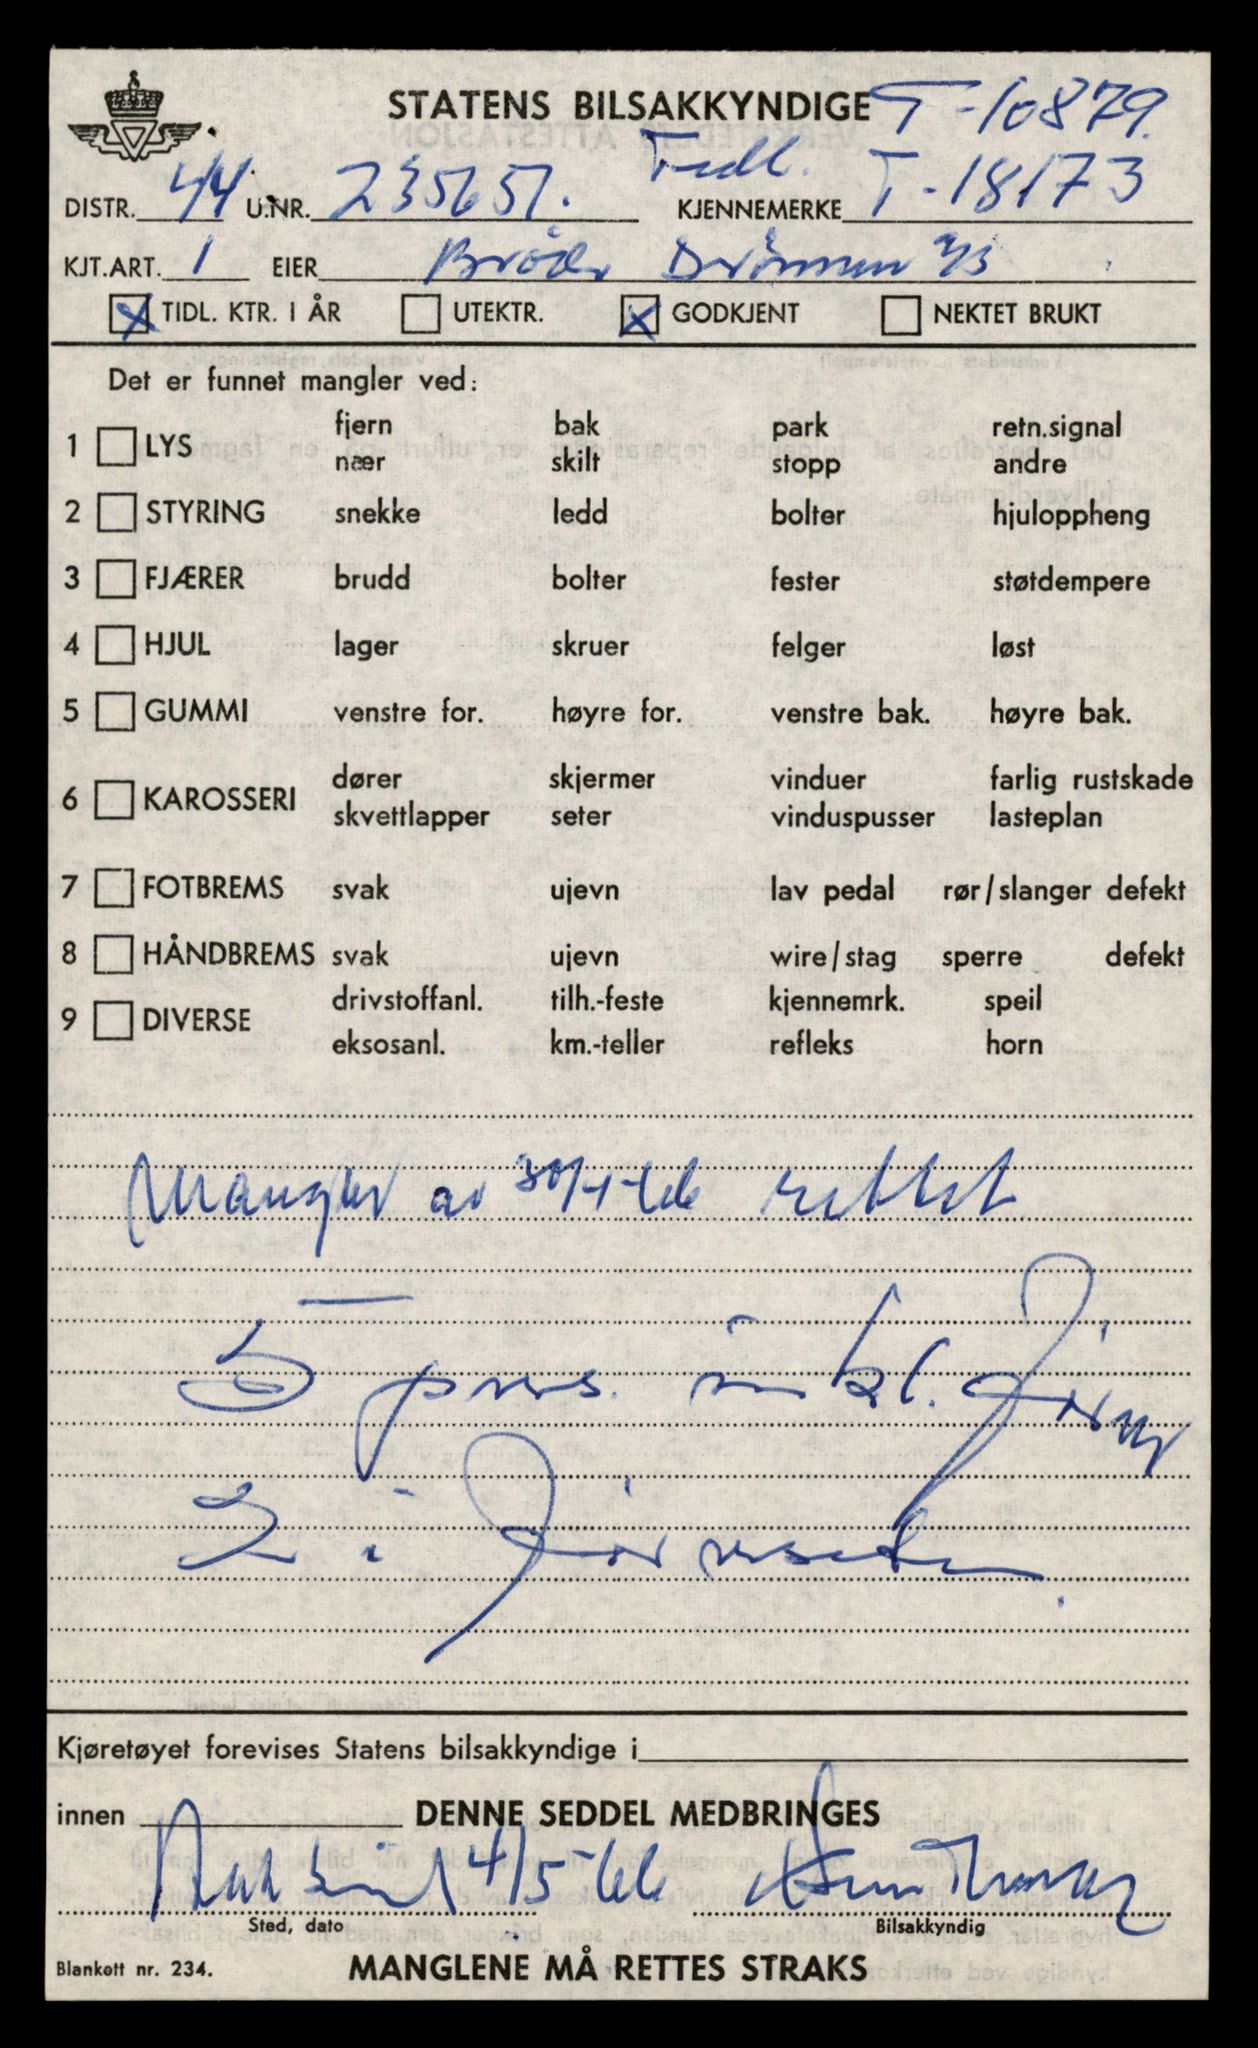 STATENS BILSAKKYNDIGE T-10879.
Tidl.
DISTR. 44 U.NR. 235651. KJENNEMERKE T-18173
KJT.ART. 1 EIER Brødr
TIDL. KTR. I ÅR UTEKTR. GODKJENT NEKTET BRUKT
Det er funnet mangler ved:
fjern bak park retn.signal
1 LYS
nær skilt stopp andre
2 STYRING snekke ledd bolter hjuloppheng
3 FJÆRER brudd bolter fester støtdempere
4 HJUL lager skruer felger løst
5 GUMMI venstre for. høyre for. venstre bak. høyre bak.
dører skjermer vinduer farlig rustskade
6 KAROSSERI
skvettlapper seter vinduspusser lasteplan
7 FOTBREMS svak ujevn lav pedal rør/slanger defekt
8 HÅNDBREMS svak ujevn wire/stag sperre defekt
drivstoffanl. tilh.-feste kjennemrk. speil
9 DIVERSE
eksosanl. km.-teller refleks horn
Mangler av 30/4-66 rettet
5 pers. inkl. fører
2 i førersetet.
Kjøretøyet forevises Statens bilsakkyndige i
innen DENNE SEDDEL MEDBRINGES
4/5-66
Sted, dato Bilsakkyndig
Blankett nr. 234. MANGLENE MÅ RETTES STRAKS